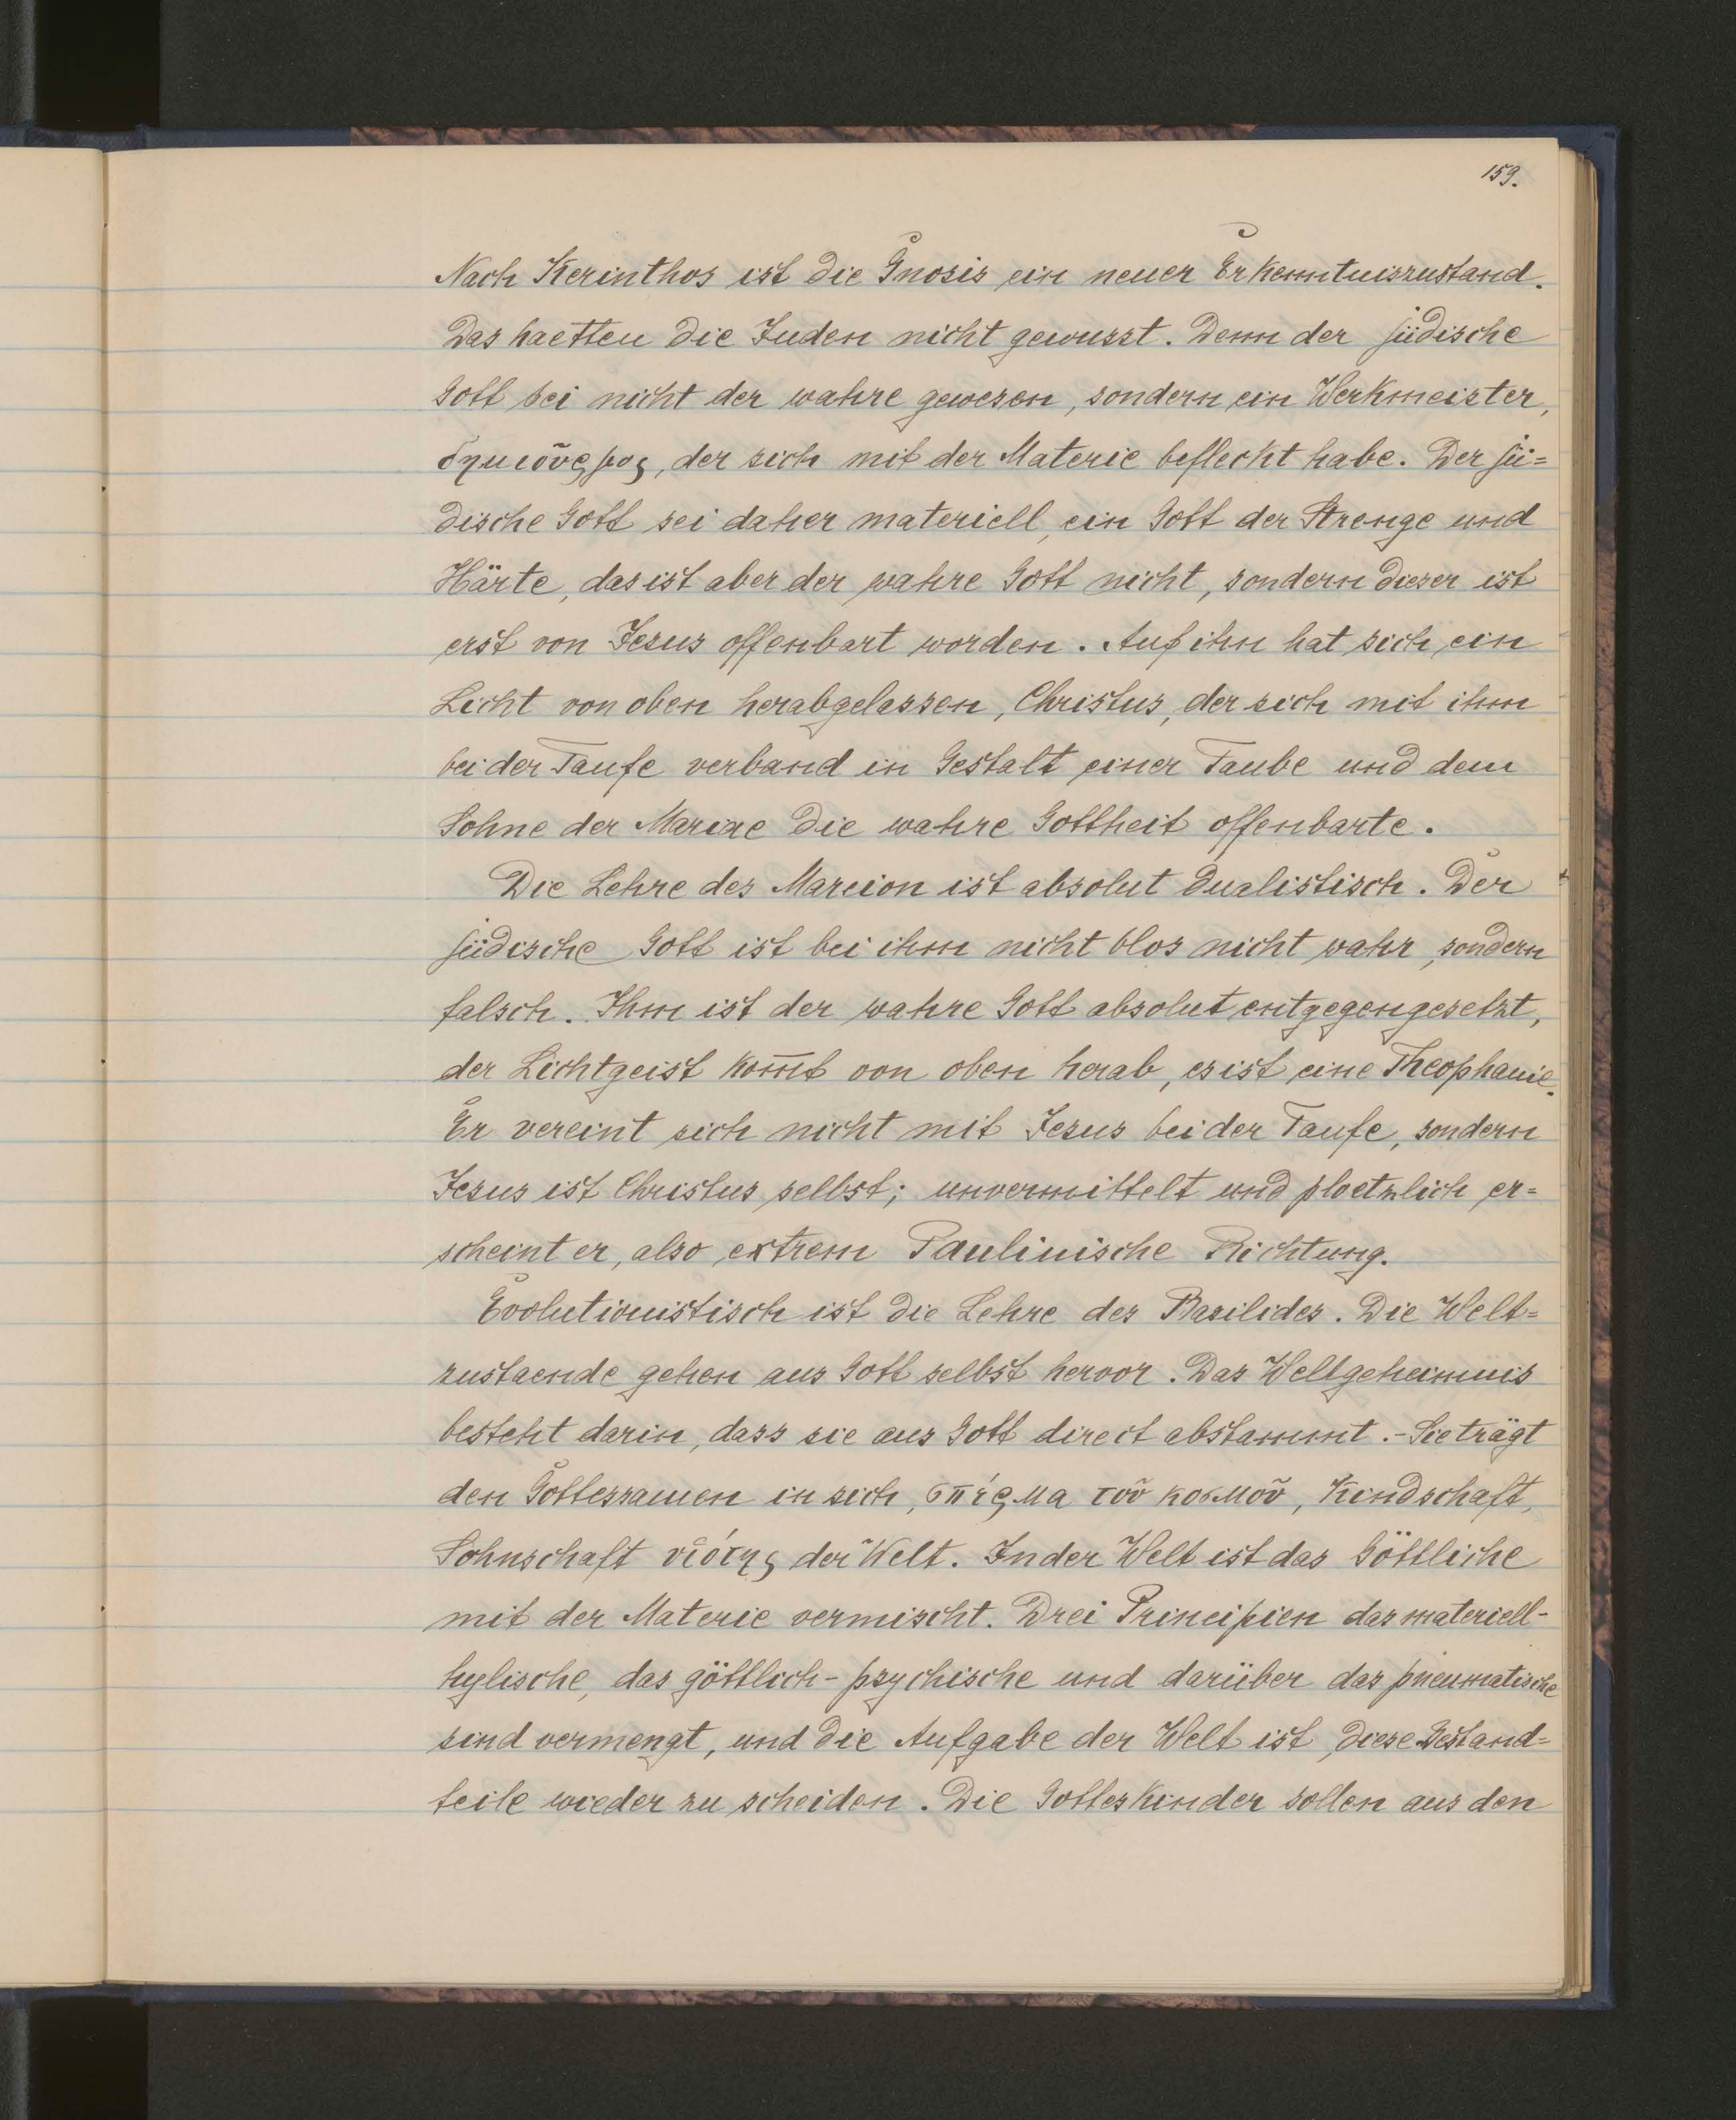 159.
Nach Kerinthos ist die Gnosis ein neuer Erkenntniszustand.
Das haetten die Juden nicht gewusst. Denn der jüdische
Gott sei nicht der wahre gewesen, sondern ein Werkmeister,
δημιοῦργος, der sich mit der Materie befleckt habe. Der jü=
dische Gott sei daher materiell, ein Gott der Strenge und
Härte, das ist aber der wahre Gott nicht, sondern dieser ist
erst von Jesus offenbart worden. Auf ihn hat sich ein
Licht von oben herabgelassen, Christus, der sich mit ihm
bei der Taufe verband in Gestalt einer Taube und dem
Sohne der Mariae die wahre Gottheit offenbarte.
Die Lehre des Marcion ist absolut dualistisch. Der
jüdische Gott ist bei ihm nicht blos nicht wahr, sondern
falsch. Ihm ist der wahre Gott absolut entgegengesetzt,
der Lichtgeist kom̅t von oben herab, es ist eine Theophanie.
Er vereint sich nicht mit Jesus bei der Taufe, sondern
Jesus ist Christus selbst; unvermittelt und ploetzlich er=
scheint er, also extrem Paulinische Richtung.
Evolutionistisch ist die Lehre des Basilides. Die Welt=
zustaende gehen aus Gott selbst hervor. Das Weltgeheimnis
besteht darin, dass sie aus Gott direct abstammt.- Sie trägt
den Gottessamen in sich, σπέρμα τοῦ κοσμοῦ, Kindschaft,
Sohnschaft υἱότης der Welt. In der Welt ist das Göttliche
mit der Materie vermischt. Drei Principien das materiell-
hylische, das göttlich-psychische und darüber das pneumatische
sind vermengt, und die Aufgabe der Welt ist, diese Bestand=
teile wieder zu scheiden. Die Gotteskinder sollen aus den